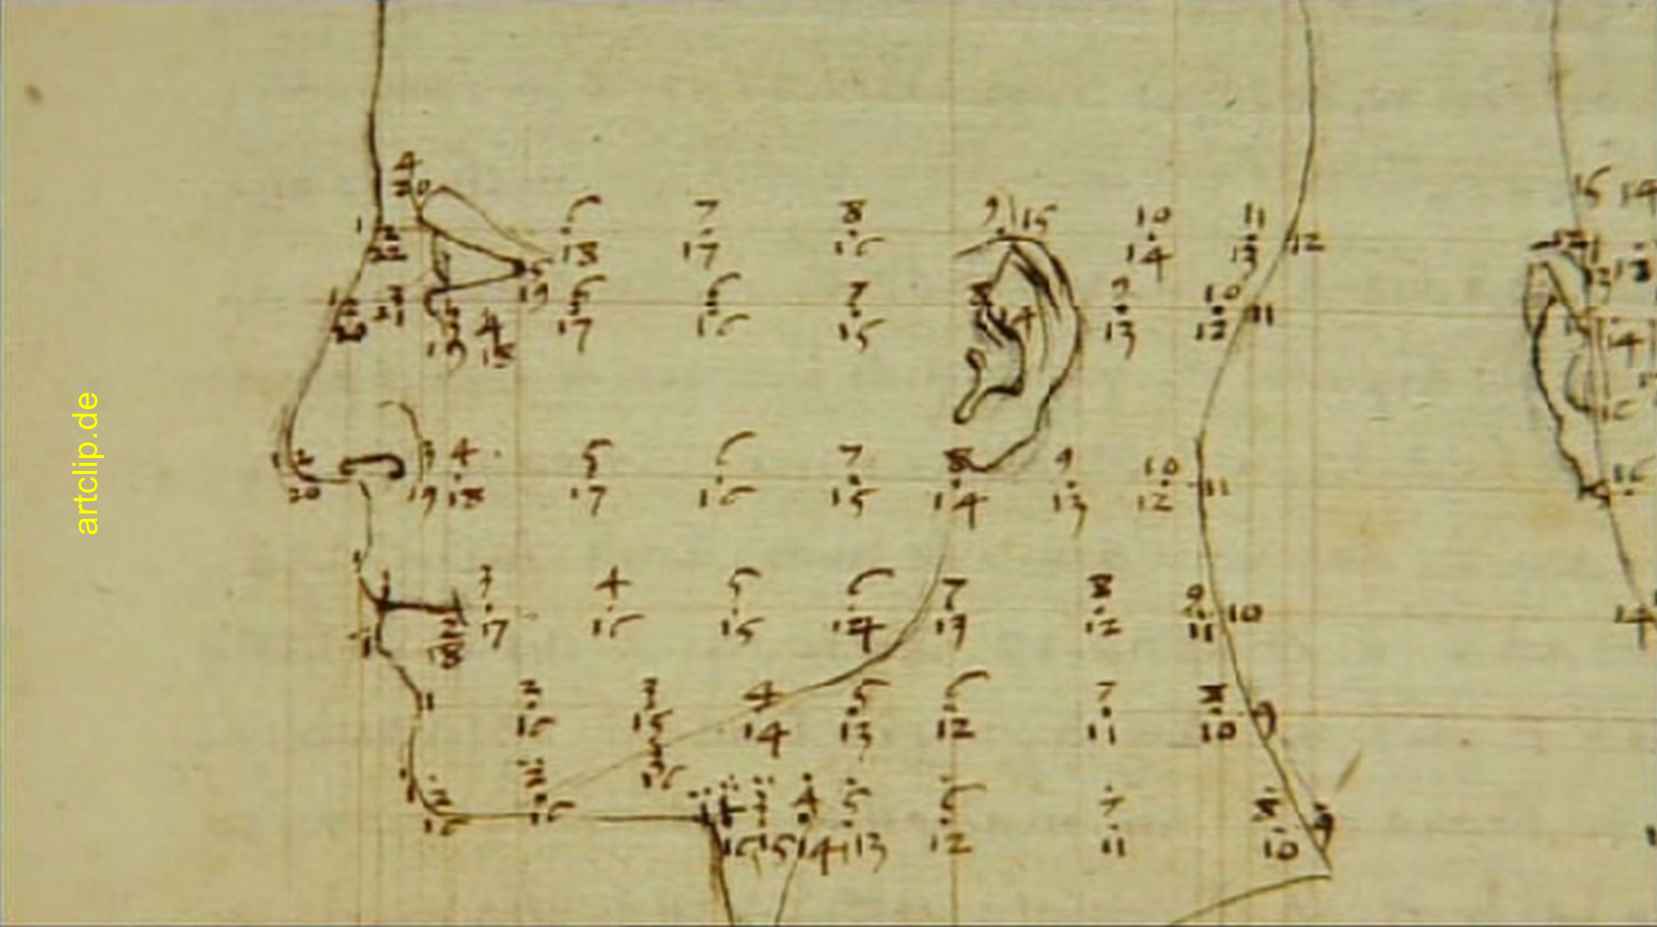 4
20
6 7 8 9 15 10 11
1 2 18 17 16 14 13 12
22
5
19
6 6 7 8 9 10
2 3 17 16 15 14 13 12 11
20 21 19 4
18
1 2 3 4 5 6 7 8 9 10
20 19 18 17 16 15 14 13 12 11
1
1 3 4 5 6 7 8 9 10
1 2 17 16 15 14 13 12 11
18
1 2 3 4 5 6 7 8 9
16 15 14 13 12 11 10
3
16
1 2 2 4 5 6 7 8 9
16 16 16 15 14 13 12 11 10
15 14
14
artclip.de